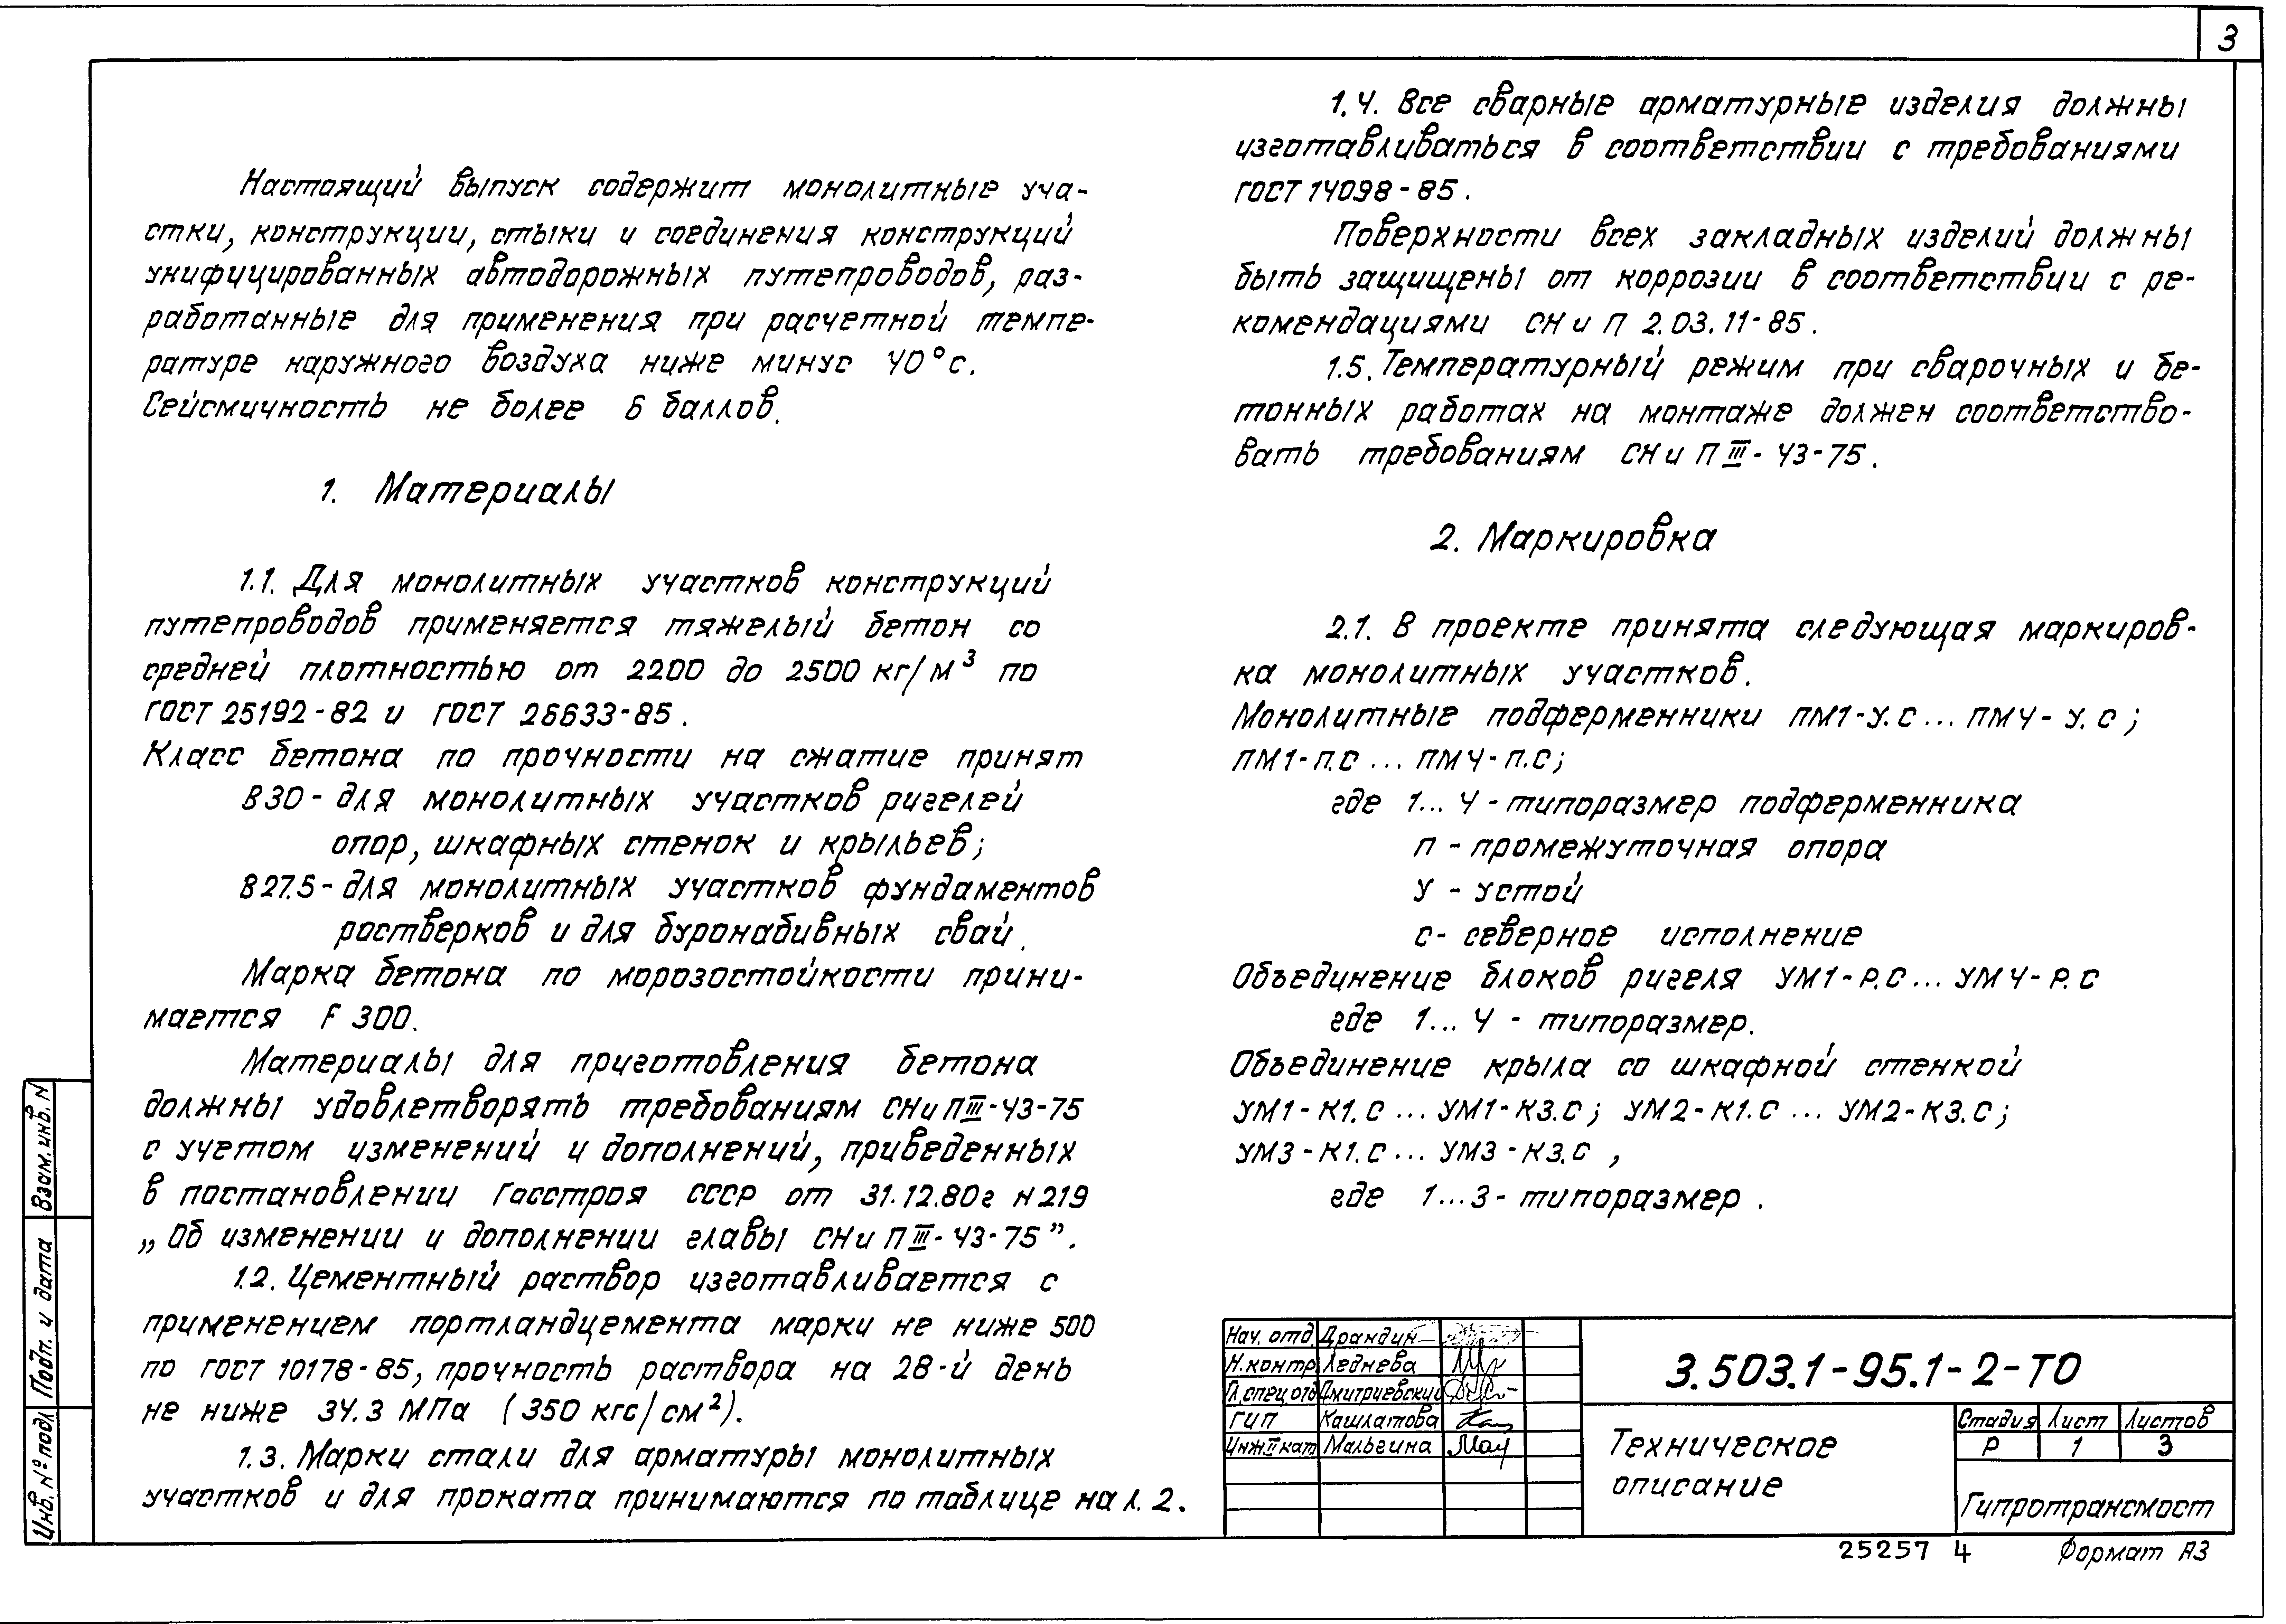 3
Настоящий выпуск содержит монолитные уча-
стки, конструкции, стыки и соединения конструкций
унифицированных автодорожных путепроводов, раз-
работанные для применения при расчетной темпе-
ратуре наружного воздуха ниже минус 40°с.
Сейсмичность не более 6 баллов.
1. Материалы
1.1. Для монолитных участков конструкций
путепроводов применяется тяжелый бетон со
средней плотностью от 2200 до 2500 кг/м³ по
ГОСТ 25192-82 и ГОСТ 26633-85.
Класс бетона по прочности на сжатие принят
В30 - для монолитных участков ригелей
опор, шкафных стенок и крыльев;
В27.5 - для монолитных участков фундаментов
ростверков и для буронабивных свай.
Марка бетона по морозостойкости прини-
мается F 300.
Материалы для приготовления бетона
должны удовлетворять требованиям СНиП III-43-75
с учетом изменений и дополнений, приведенных
в постановлении Госстроя СССР от 31.12.80г N219
„Об изменении и дополнении главы СНиП III-43-75”.
1.2. Цементный раствор изготавливается с
применением портландцемента марки не ниже 500
по ГОСТ 10178-85, прочность раствора на 28-й день
не ниже 34.3 МПа (350 кгс/см²).
1.3. Марки стали для арматуры монолитных
участков и для проката принимаются по таблице на л. 2.
1.4. Все сварные арматурные изделия должны
изготавливаться в соответствии с требованиями
ГОСТ 14098-85.
Поверхности всех закладных изделий должны
быть защищены от коррозии в соответствии с ре-
комендациями СНиП 2.03.11-85.
1.5. Температурный режим при сварочных и бе-
тонных работах на монтаже должен соответство-
вать требованиям СНиП III-43-75.
2. Маркировка
2.1. В проекте принята следующая маркиров-
ка монолитных участков.
Монолитные подферменники ПМ1-У.С ... ПМ4-У.С;
ПМ1-П.С ... ПМ4-П.С;
где 1... 4 - типоразмер подферменника
П - промежуточная опора
У - устой
С - северное исполнение
Объединение блоков ригеля УМ1-Р.С ... УМ4-Р.С
где 1... 4 - типоразмер.
Объединение крыла со шкафной стенкой
УМ1-К1.С ... УМ1-К3.С; УМ2-К1.С ... УМ2-К3.С;
УМ3-К1.С ... УМ3-К3.С,
где 1...3 - типоразмер.
Взам. инв. N
Подп. и дата
Инв. N° подл
Нач. отд. Драндин
Н.контр Леднева
Гл.спец.отд Дмитриевский
ГИП Кашлатова
Инж. II кат Мальгина
3.503.1-95.1-2-ТО
Техническое
описание
Стадия Лист Листов
Р 1 3
Гипротрансмост
25257 4 Формат А3